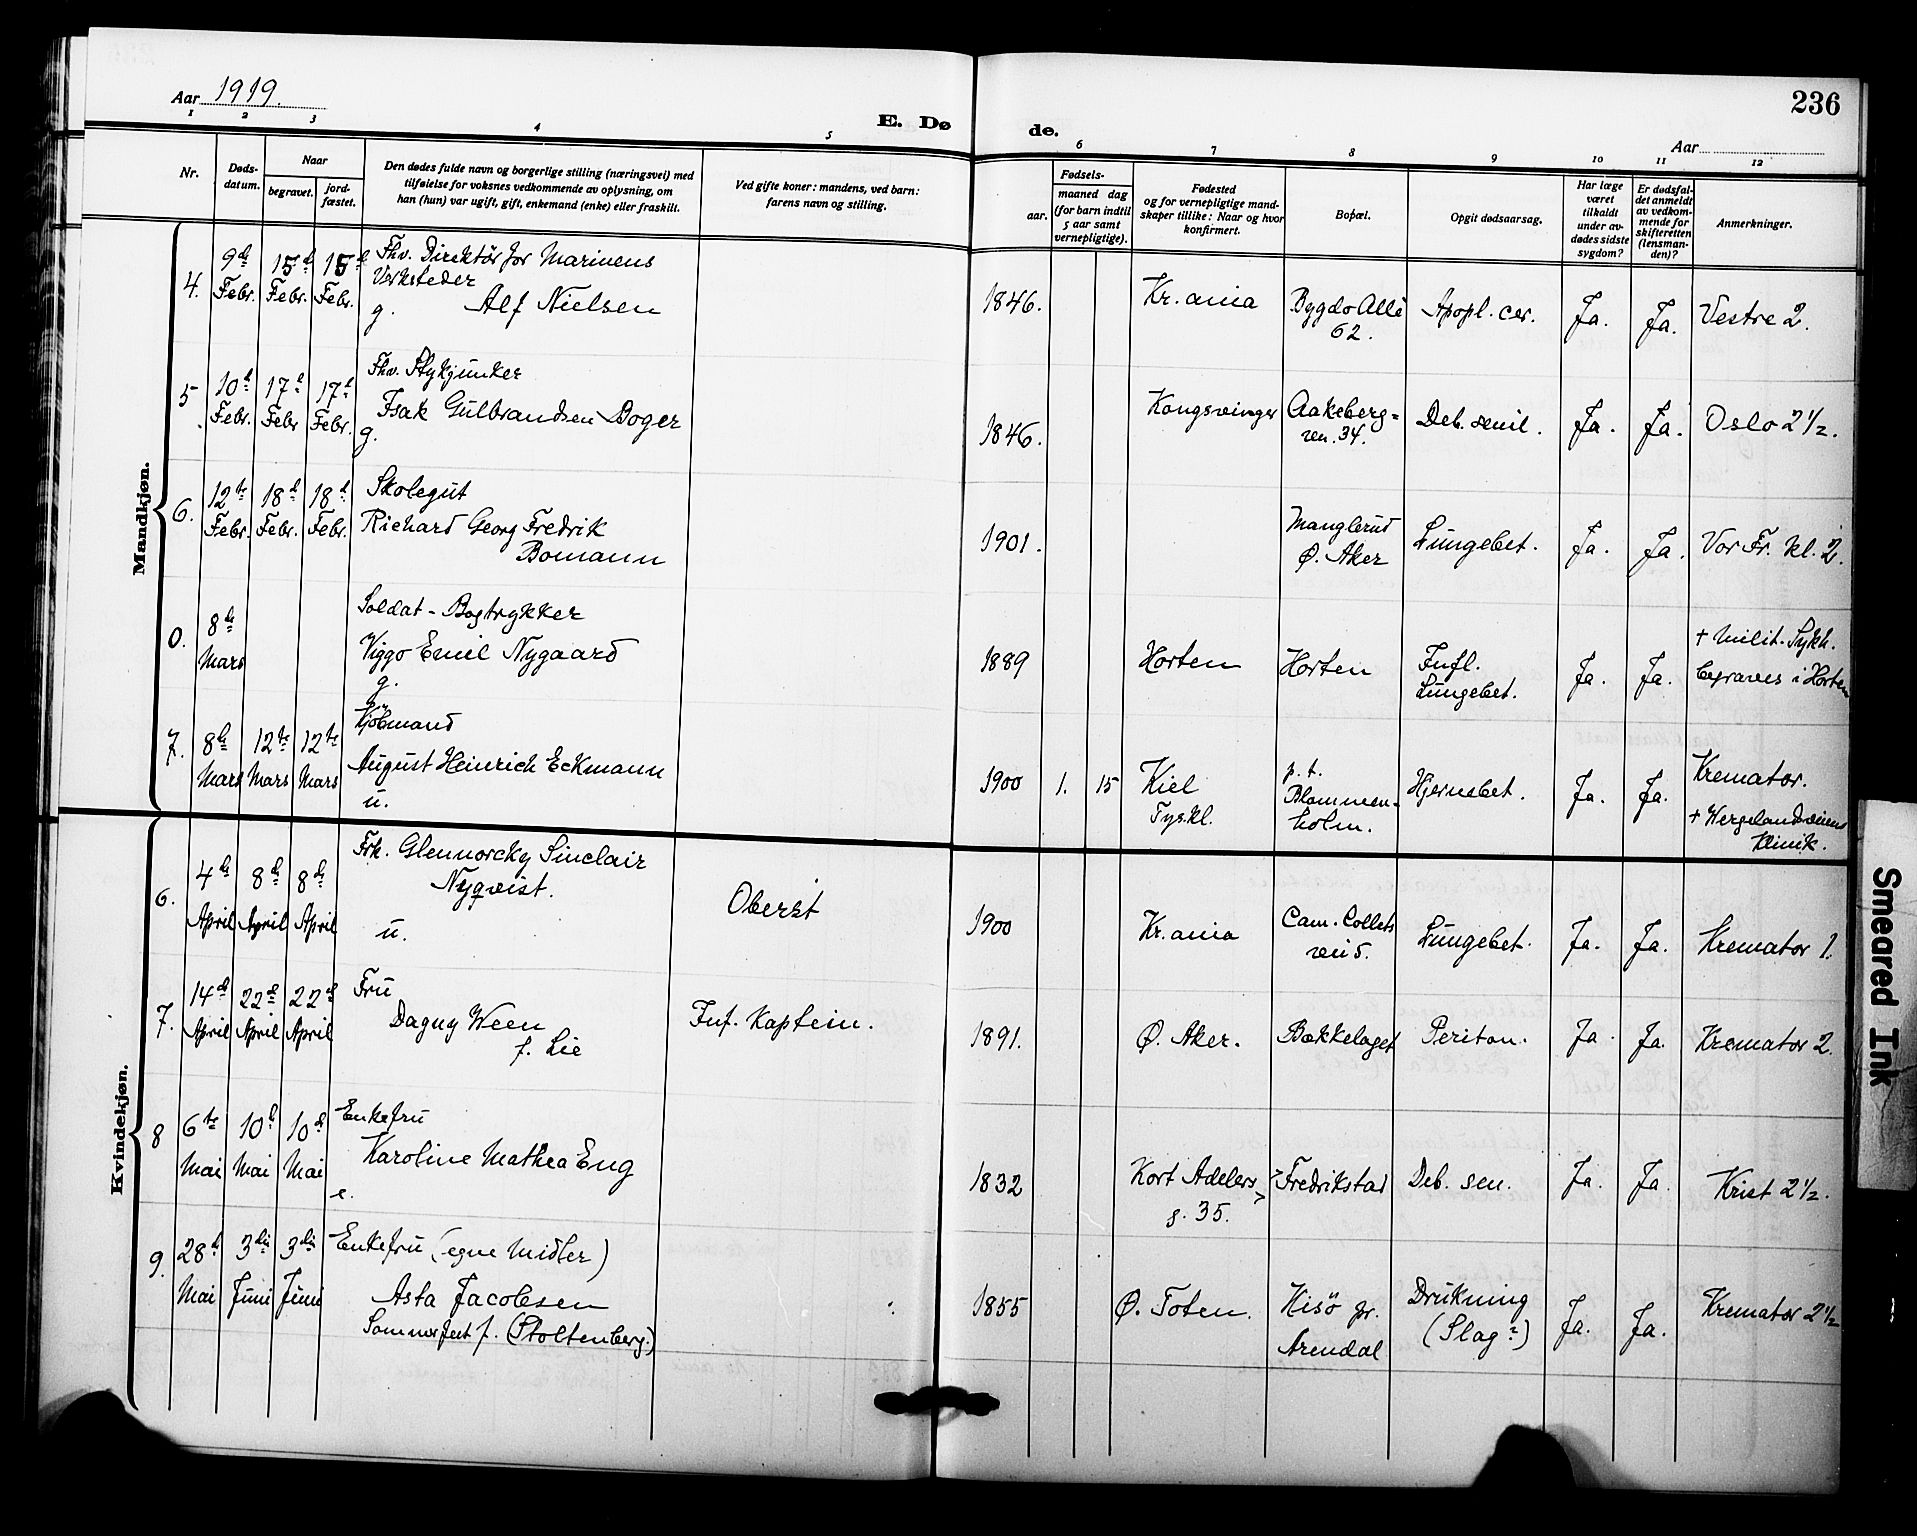 Aar 1919.
E. Døde.
236
Aar
1 2 3 4 5 6 7 8 9 10 11 12
Nr.
Døds-
datum.
Naar
begravet.
jord-
fæstet.
Den dødes fulde navn og borgerlige stilling (næringsvei) med
tilføielse for voksnes vedkommende av oplysning, om
han (hun) var ugift, gift, enkemand (enke) eller fraskilt.
Ved gifte koner: mandens, ved barn:
farens navn og stilling.
Fødsels-
aar.
maaned dag
(for barn indtil
5 aar samt
vernepligtige).
Fødested
og for vernepligtige mand-
skaper tillike: Naar og hvor
konfirmert.
Bopæl.
Opgit dødsaarsag.
Har læge
været
tilkaldt
under av-
dødes sidste
sygdom?
Er dødsfal-
det anmeldt
av vedkom-
mende for
skifteretten
(lensman-
den)?
Anmerkninger.
Mandkjøn.
4. 9de Febr. 15d Febr. 15d Febr.
Fhv. Direktör for Marinens
Verksteder
g. Alf Nielsen
1846. Kr.ania Bygdø Alle
62.
Apopl. cer. Ja. Ja. Vestre 2.
5 10d Febr. 17d Febr 17d Febr.
Fhv. Stykjunker
Isak Gulbrandsen Boger
g.
1846. Kongsvinger Aakeberg=
ven. 34.
Deb. senil. Ja. Ja. Oslo 2 1/2.
6. 12te Febr. 18d Febr. 18d Febr.
Skolegut
Richard Georg Fredrik
Bomann
1901. Manglerud
Ø. Aker
Lungebet. Ja. Ja. Vor Fr. kl. 2.
0. 8de Mars
Soldat - Bogtrykker
Viggo Emil Nygaard
g.
1889 Horten Horten Infl.
Lungebet.
Ja. Ja. + Milit. Sykh.
begraves i Horten
7. 8de Mars 12te Mars 12te Mars
Kjöbmand
August Heinrich Eckmann
u.
1900 1. 15 Kiel
Tyskl.
p. t.
Blommen-
holm.
Hjernebet. Ja. Ja. Kremator.
+ Wergelandsveiens
Klinik.
Kvindekjøn.
6. 4de April 8de April 8de April
Frk. Glennorcky Sinclair
Nyqvist.
u.
Oberst
1900 Kr.ania Cam. Collets
vei 5.
Lungebet. Ja. Ja. Kremator 1.
7. 14de April 22de April 22de April
Fru
Dagny Ween
f. Lie
Inf. Kaptein.
1891. Ø. Aker. Bækkelaget Periton. Ja. Ja. Kremator 2.
8 6te Mai 10d Mai 10d Mai
Enkefru
Karoline Mathea Eng
e.
1832 Kort Adelers
g. 35.
Fredrikstad Deb. sen. Ja. Ja. Krist 2 1/2.
9. 28d Mai 3die Juni 3die Juni
Enkefru (egne Midler)
Asta Jacobsen
Sommerfelt f. (Stoltenberg.)
1855 Ø. Toten. Hisö pr.
Arendal
Drukning
(Slag?)
Ja. Ja. Kremator 2 1/2
Smeared Ink